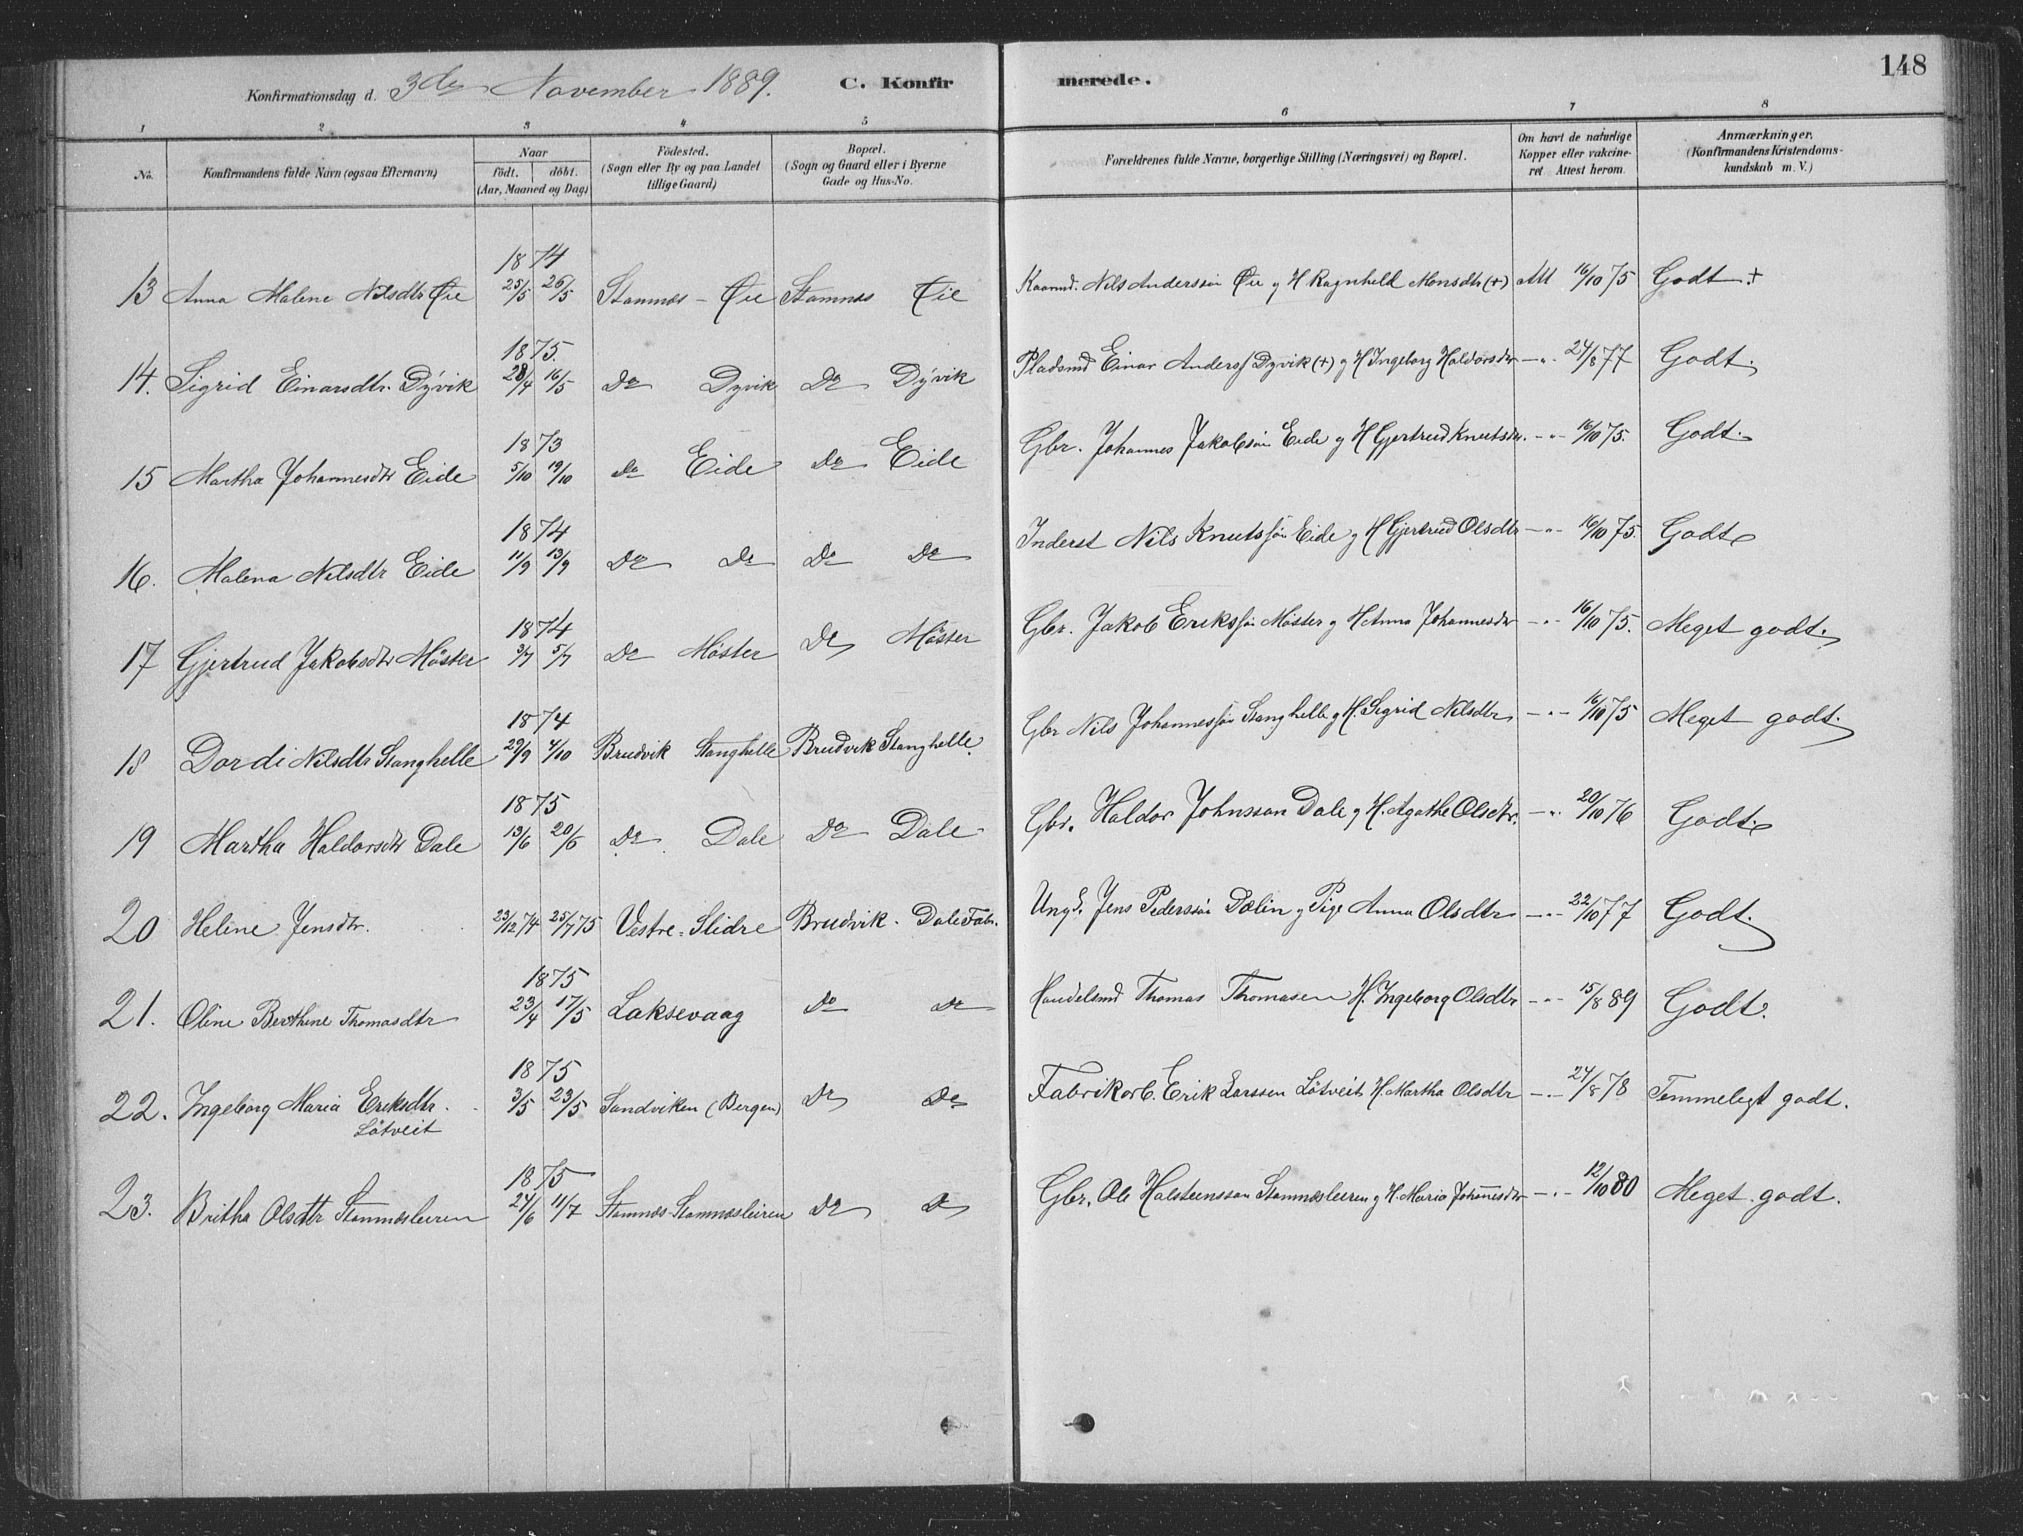 148
Konfirmationsdag d. 3die November 1889. C. Konfirmerede.
1 2 3 4 5 6 7 8
No. Konfirmandens fulde Navn (ogsaa Efternavn) Naar födt. döbt. (Aar, Maaned og Dag) Födested. (Sogn eller By og paa Landet tillige Gaard) Bopæl. (Sogn og Gaard eller i Byerne Gade og Hus-No. Forældrenes fulde Navne, borgerlige Stilling (Næringsvei) og Bopæl. Om havt de naturlige Kopper eller vakcineret Attest herom. Anmærkninger. (Konfirmandens Kristendomskundskab m. V.)
1874
13 Anna Malene Nilsdtr Øie 25/5 26/5 Stamnæs - Øie Stamnæs Øie Kaarmd. Nils Anderssön Øie og H Ragnhild Monsdtr (+) Att 16/10 75 Godt +
1875.
14. Sigrid Einarsdtr. Dyvik 28/4 16/5 Do Dyvik Do Dyvik Pladsmd Einar Anderss Dyvik (+) og H Ingeborg Haldorsdtr -"- 24/8 77 Godt.
1873
15 Martha Johannesdtr Eide 5/10 19/10 Do Eide Do Eide Gbr. Johannes Jakobsön Eide og H Gjertrud Knutsdtr. -"- 16/10 75. Godt.
1874
16. Malena Nilsdtr Eide 11/9 13/9 Do Do Do Do Inderst Nils Knutssön Eide og H Gjertrud Olsdtr -"- 16/10 75. Godt
1874
17 Gjertrud Jakobsdtr Möster 3/7 5/7 Do Möster Do Möster Gbr. Jakob Erikssön Möster og H Anna Johannesdtr -"- 16/10 75. Meget godt.
1874
18 Dordi Nilsdtr Stanghelle 29/9 4/10 Brudvik Stanghelle Brudvik Stanghelle Gbr Nils Johannessön Stanghelle og H. Sigrid Nilsdtr -"- 16/10 75 Meget godt.
1875
19 Martha Haldorsdtr Dale 13/6 20/6 Do Dale Do Dale Gbr. Haldor Johnsson Dale og H. Agathe Olsdtr. -"- 20/10 76 Godt.
20 Heline Jensdtr. 23/12 74 25/7 75 Vestre-Slidre Brudvik - Dale Fabr. Ungk. Jens Pederssön Dælin og Pige Anna Olsdtr -"- 22/10 77 Godt.
1875
21. Oline Berthine Thomasdtr 23/4 17/5 Laksevaag Do Do Handelsmd Thomas Thomasen H. Ingeborg Olsdtr -"- 15/8 89 Godt.
1875
22. Ingeborg Maria Eriksdtr. Lötveit 3/5 23/5 Sandviken (Bergen) Do Do Fabrikarb. Erik Larssen Lötveit H. Martha Olsdtr -"- 24/8 78 Temmeligt godt.
1875
23. Britha Olsdtr Stamnæsleiren 24/6 11/7 Stamnæs-Stamnæsleiren Do Do Gbr. Ole Halsteensson Stamnæsleiren og H. Maria Johannesdtr -"- 12/10 80 Meget godt.